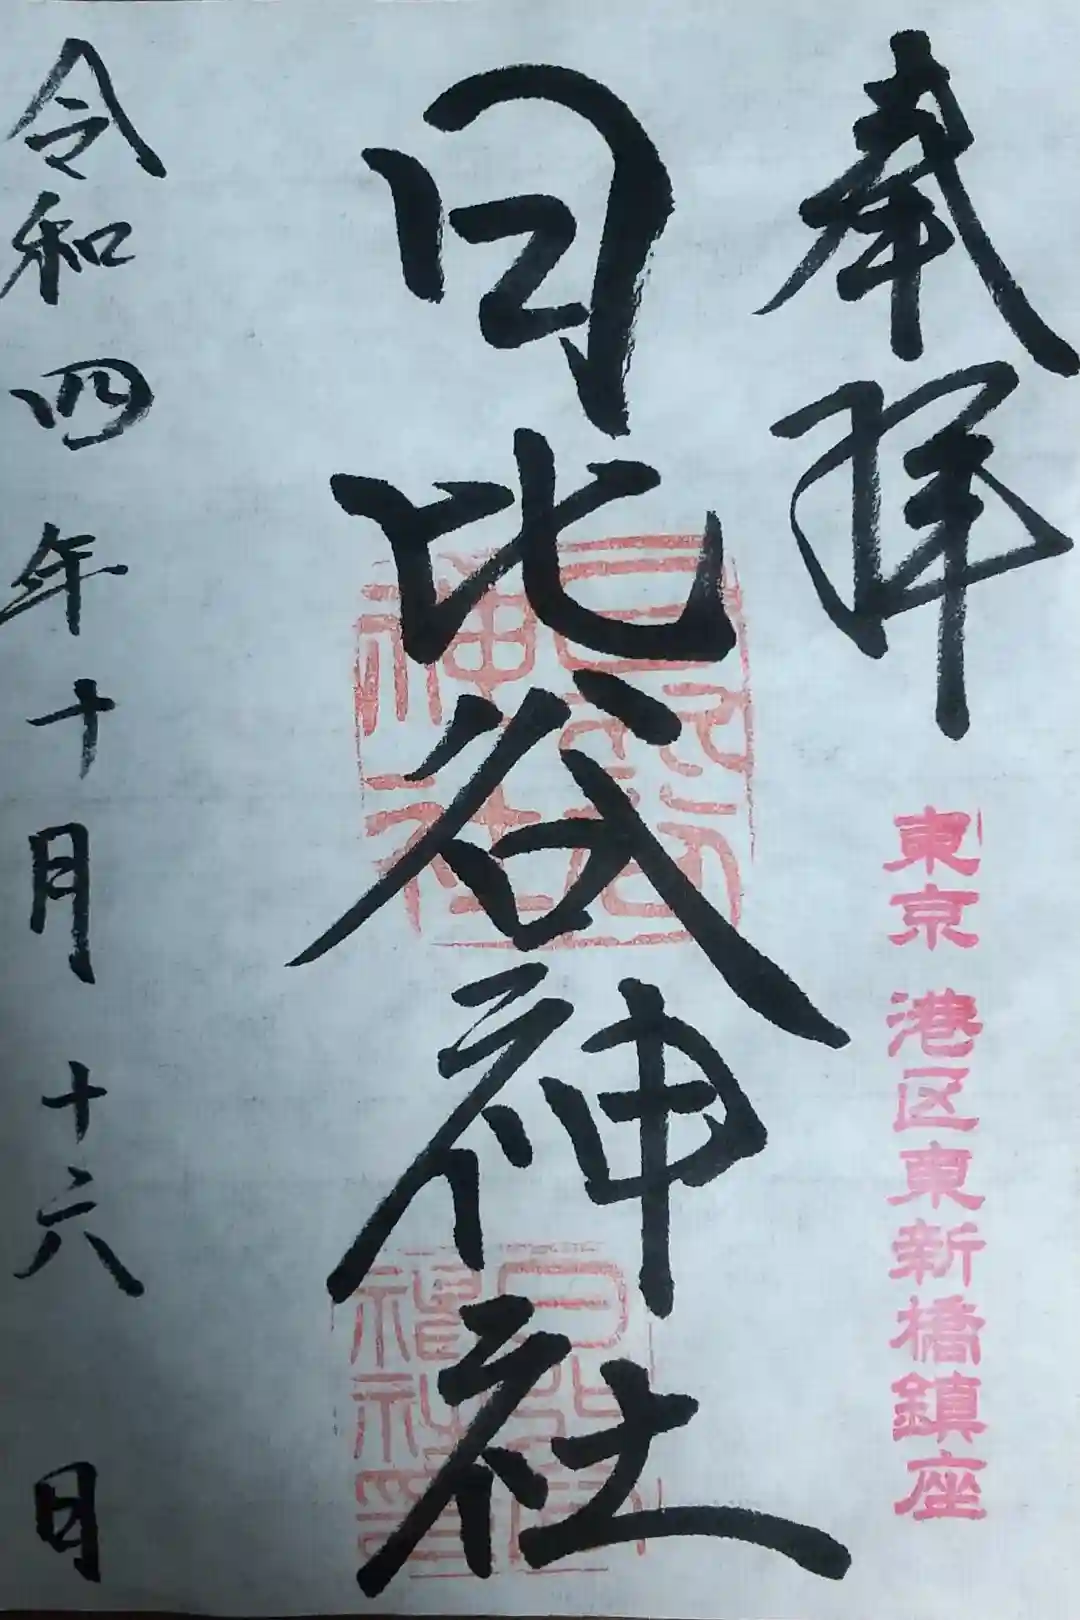 奉拝
東京 港区東新橋鎮座
日比谷神社
日比谷神社
令和四年十月十六日